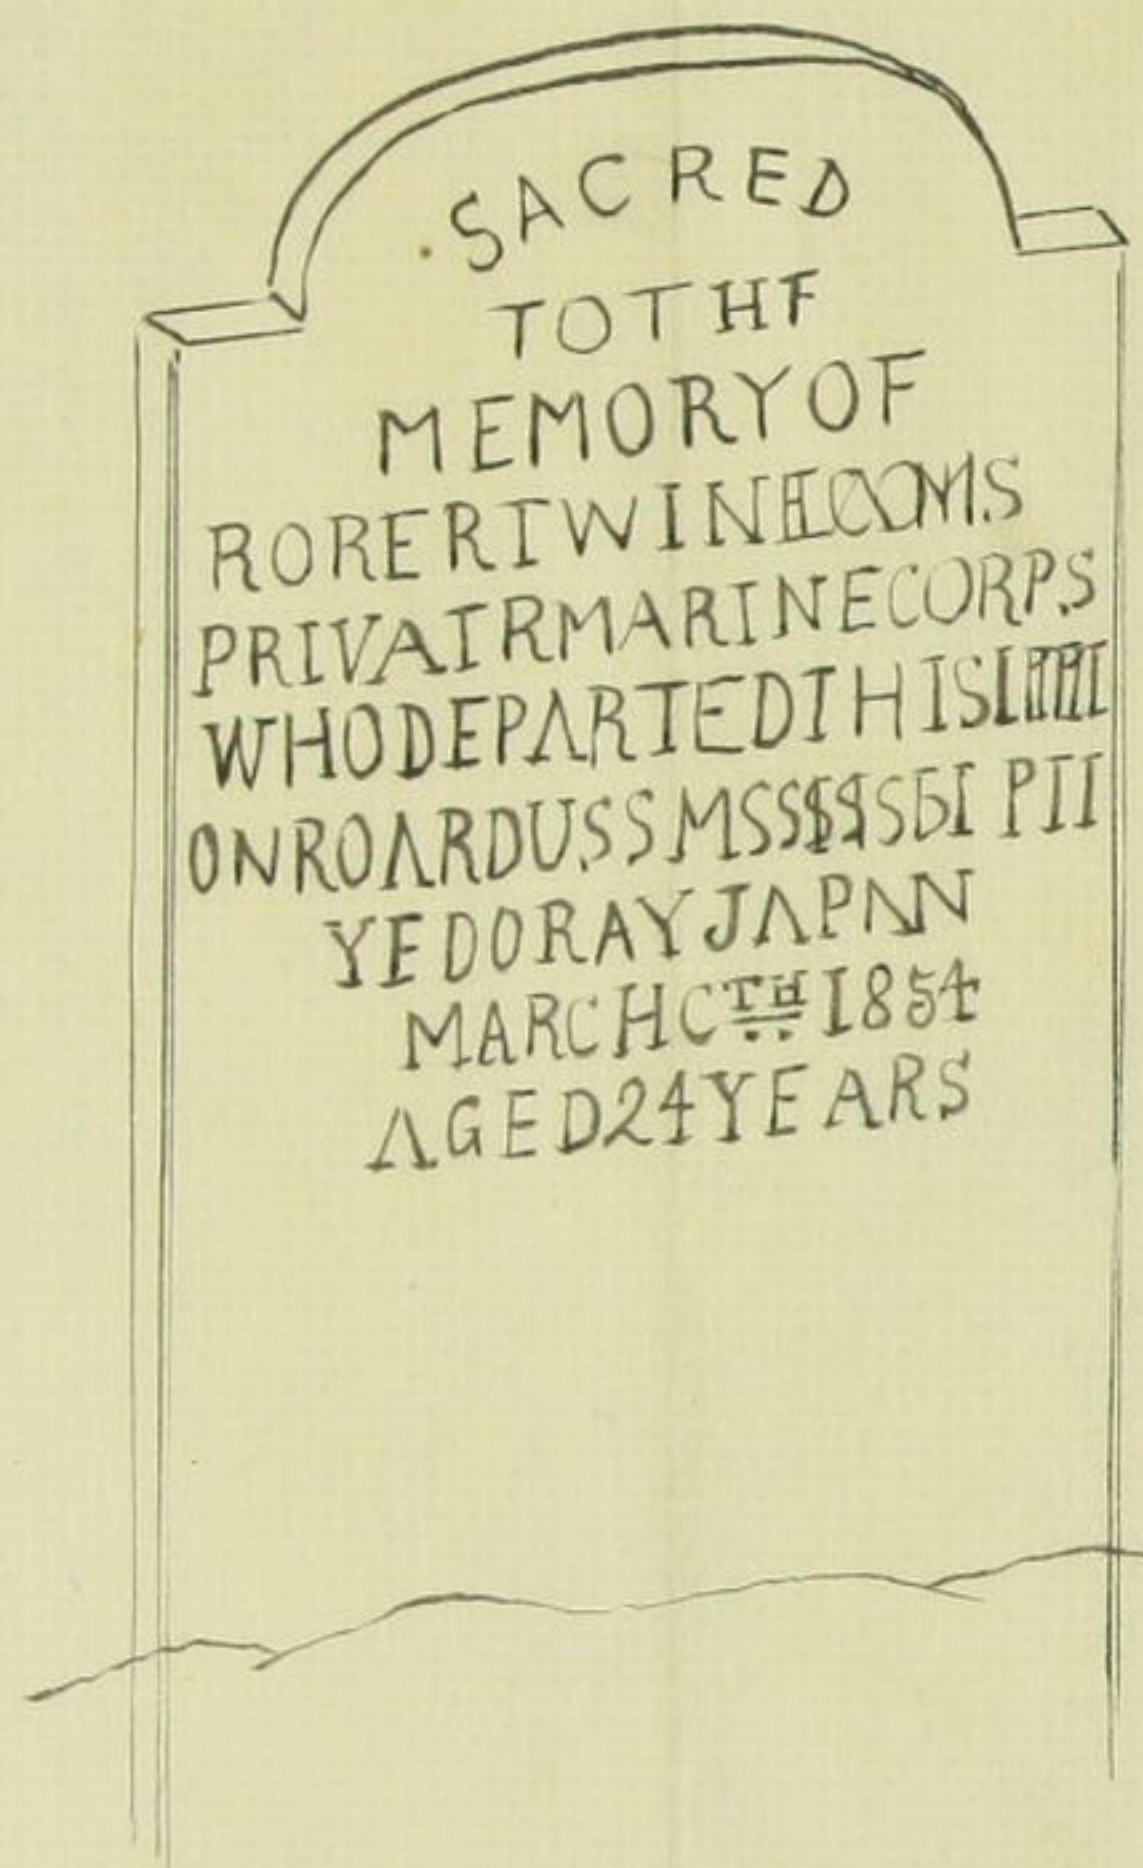 SACRED
TO THF
MEMORY OF
RORERT
PRIVAIR MARINE CORPS
WHO DEPARTED THIS
ON ROARD U.S S
YEDO RAY JAPAN
MARCH C TH 1854
AGED 24 YEARS